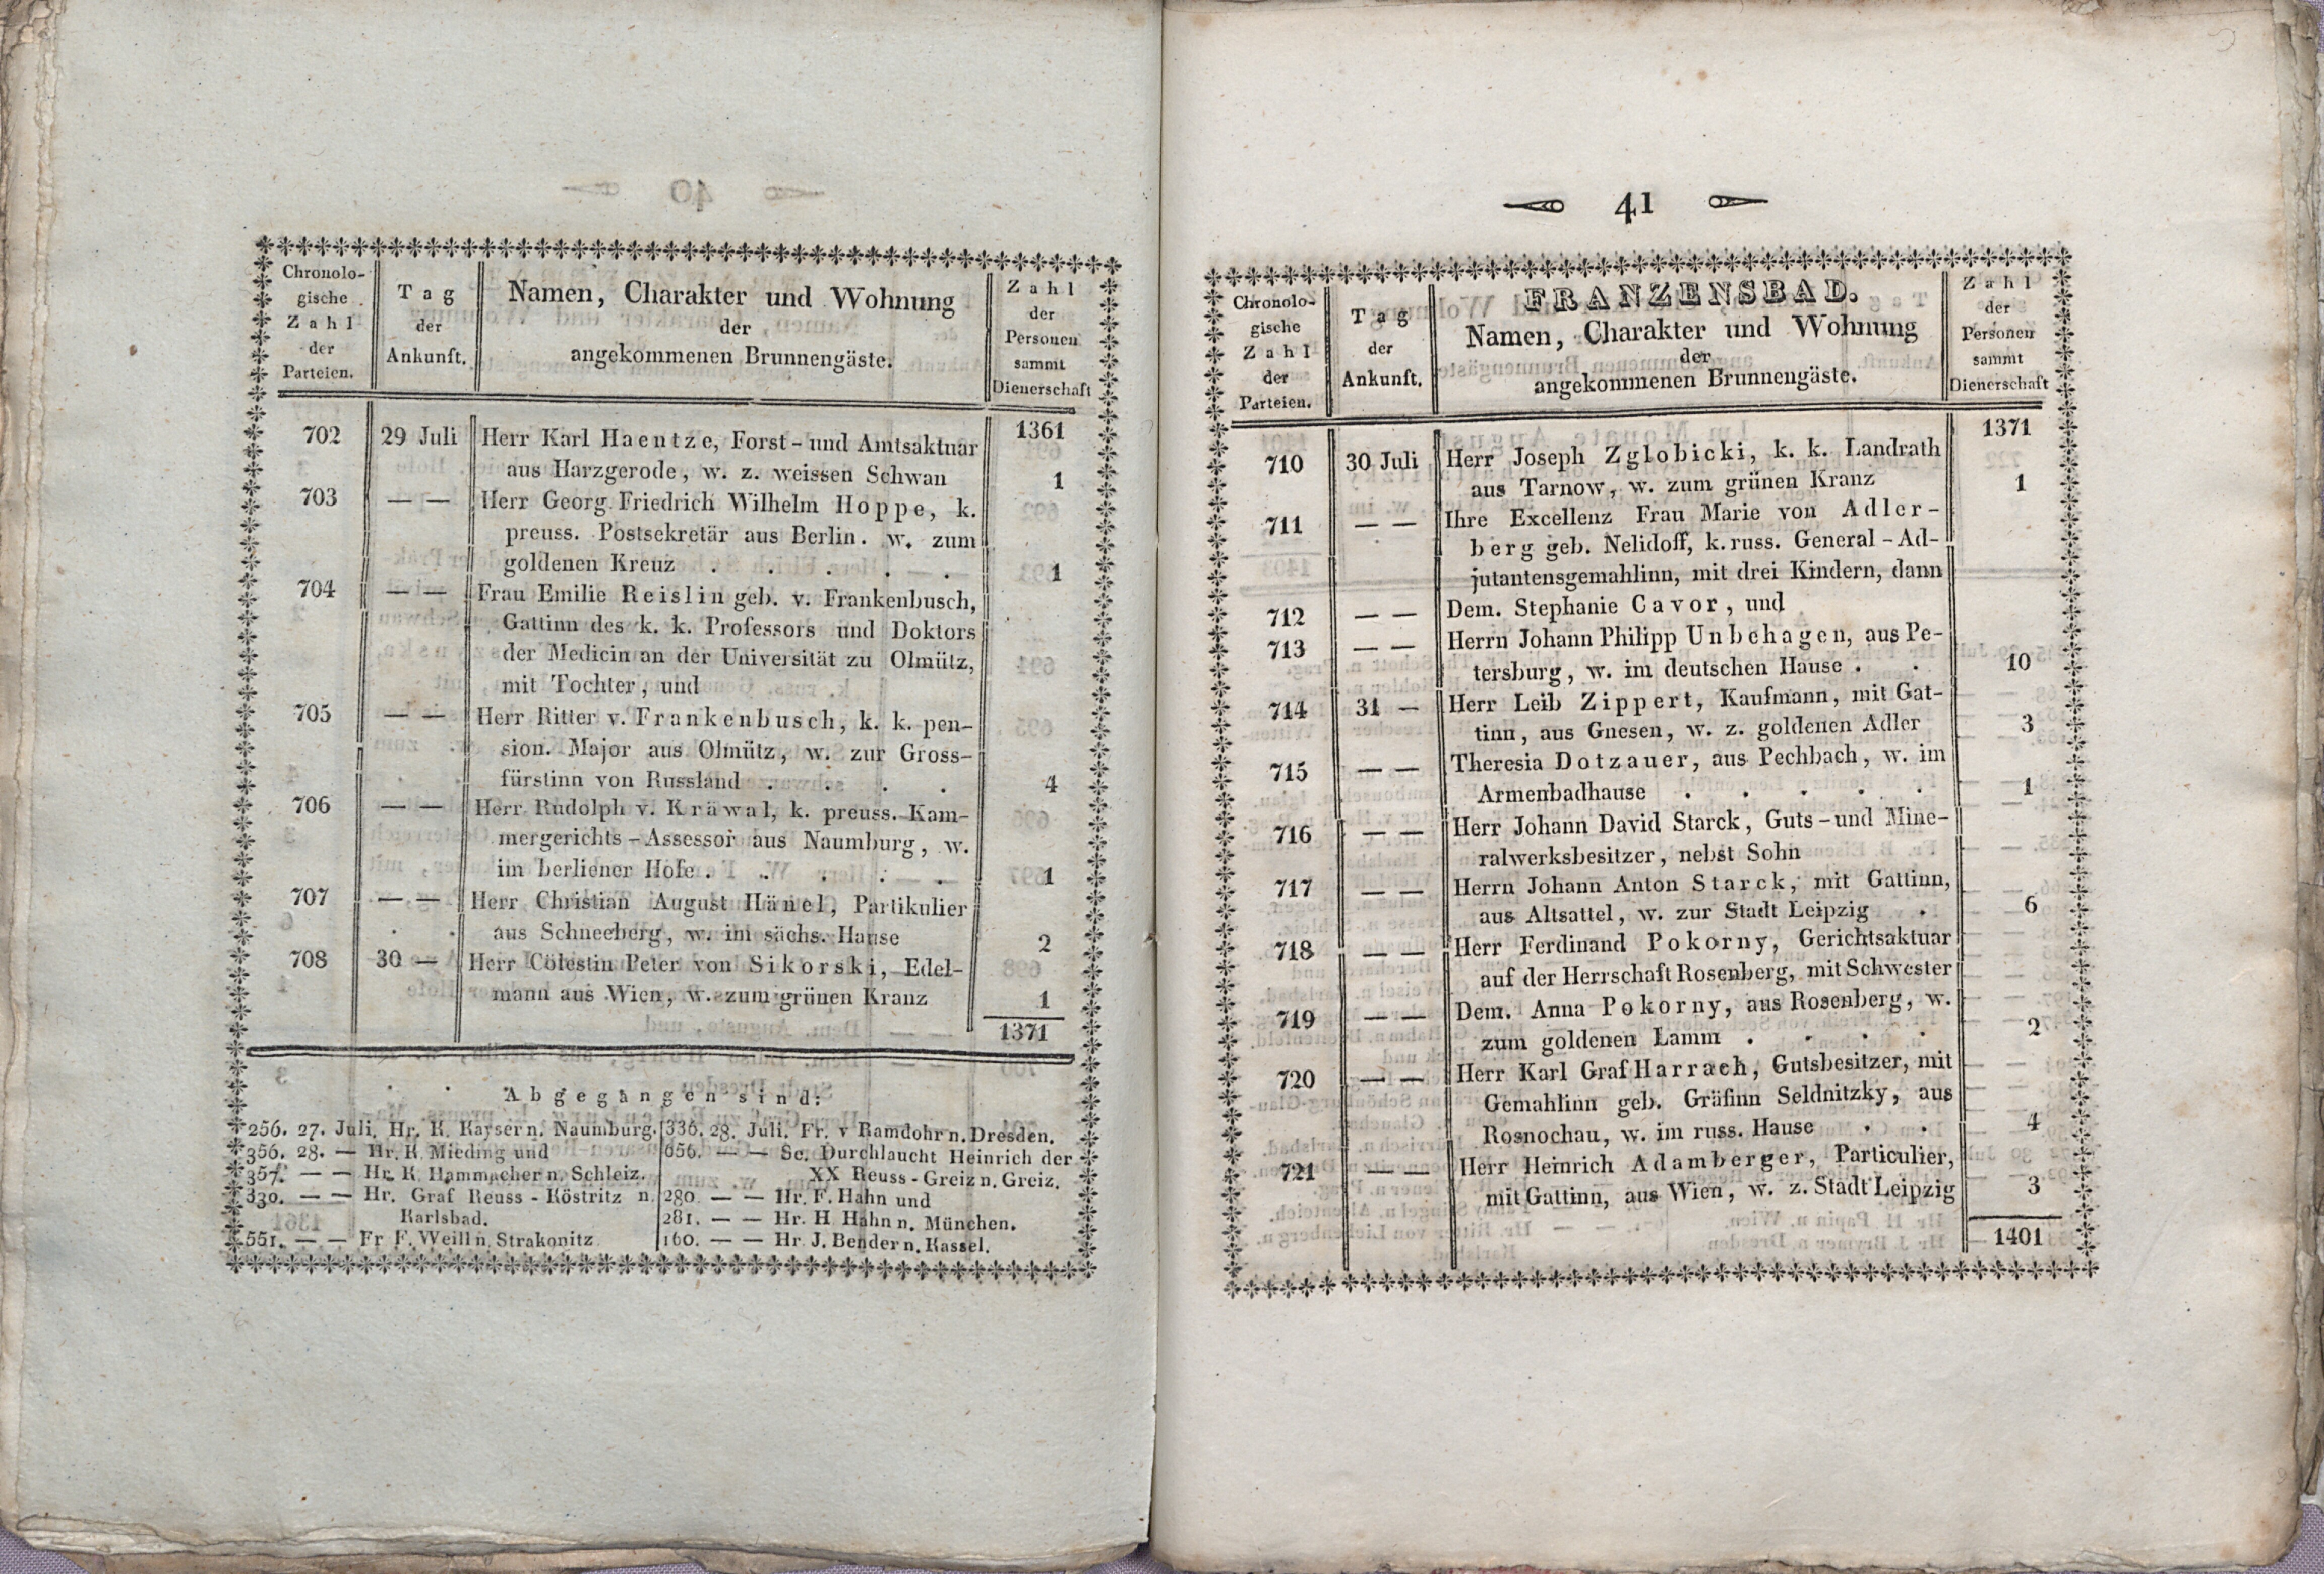 Chronolo-
gische
Zahl
der
Parteien.
Tag
der
Ankunft.
Namen, Charakter und Wohnung
der
angekommenen Brunnengäste.
Zahl
der
Personen
sammt
Dienerschaft
1361
702 29 Juli Herr Karl Haentze, Forst- und Amtsaktuar
aus Harzgerode, w. z. weissen Schwan 1
703 — — Herr Georg Friedrich Wilhelm Hoppe, k.
preuss. Postsekretär aus Berlin. w. zum
goldenen Kreuz . . . . . 1
704 — — Frau Emilie Reislin geb. v. Frankenbusch,
Gattinn des k. k. Professors und Doktors
der Medicin an der Universität zu Olmütz,
mit Tochter, und
705 — — Herr Ritter v. Frankenbusch, k. k. pen-
sion. Major aus Olmütz, w. zur Gross-
fürstinn von Russland . . . . 4
706 — — Herr Rudolph v. Kräwal, k. preuss. Kam-
mergerichts-Assessor aus Naumburg, w.
im berliener Hofe . . . . . 1
707 — — Herr Christian August Hänel, Partikulier
aus Schneeberg, w. im sächs. Hause 2
708 30 — Herr Cölestin Peter von Sikorski, Edel-
mann aus Wien, w. zum grünen Kranz 1
1371
Abgegangen sind:
256. 27. Juli. Hr. K. Kaysern. Naumburg.
356. 28. — Hr. K. Mieding und
357. — — Hr. K. Hammacher n. Schleiz.
330. — — Hr. Graf Reuss-Köstritz n.
Karlsbad.
551. — — Fr F. Weill n. Strakonitz
336. 28. Juli. Fr. v Ramdohr n. Dresden.
656. — — Se. Durchlaucht Heinrich der
XX Reuss-Greiz n. Greiz.
280. — — Hr. F. Hahn und
281. — — Hr. H Hahn n. München.
160. — — Hr. J. Bender n. Kassel.
41
Chronolo-
gische
Zahl
der
Parteien.
Tag
der
Ankunft.
FRANZENSBAD.
Namen, Charakter und Wohnung
der
angekommenen Brunnengäste.
Zahl
der
Personen
sammt
Dienerschaft
1371
710 30 Juli Herr Joseph Zglobicki, k. k. Landrath
aus Tarnow, w. zum grünen Kranz 1
711 — — Ihre Excellenz Frau Marie von Adler-
berg geb. Nelidoff, k. russ. General-Ad-
jutantensgemahlinn, mit drei Kindern, dann
712 — — Dem. Stephanie Cavor, und
713 — — Herrn Johann Philipp Unbehagen, aus Pe-
tersburg, w. im deutschen Hause . . 10
714 31 — Herr Leib Zippert, Kaufmann, mit Gat-
tinn, aus Gnesen, w. z. goldenen Adler 3
715 — — Theresia Dotzauer, aus Pechbach, w. im
Armenbadhause . . . . . 1
716 — — Herr Johann David Starck, Guts- und Mine-
ralwerksbesitzer, nebst Sohn
717 — — Herrn Johann Anton Starck, mit Gattinn,
aus Altsattel, w. zur Stadt Leipzig . 6
718 — — Herr Ferdinand Pokorny, Gerichtsaktuar
auf der Herrschaft Rosenberg, mit Schwester
719 — — Dem. Anna Pokorny, aus Rosenberg, w.
zum goldenen Lamm . . . . 2
720 — — Herr Karl Graf Harrach, Gutsbesitzer, mit
Gemahlinn geb. Gräfinn Seldnitzky, aus
Rosnochau, w. im russ. Hause . . 4
721 — — Herr Heinrich Adamberger, Particulier,
mit Gattinn, aus Wien, w. z. Stadt Leipzig 3
1401